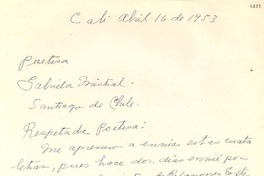 1371
Cali Abril 16 de 1953
Poetisa
Gabriela Mistral.
Santiago de Chile.
Respetada Poetisa:
Me apresuro a enviar estas cuatro
letras, pues hace dos dias envié por